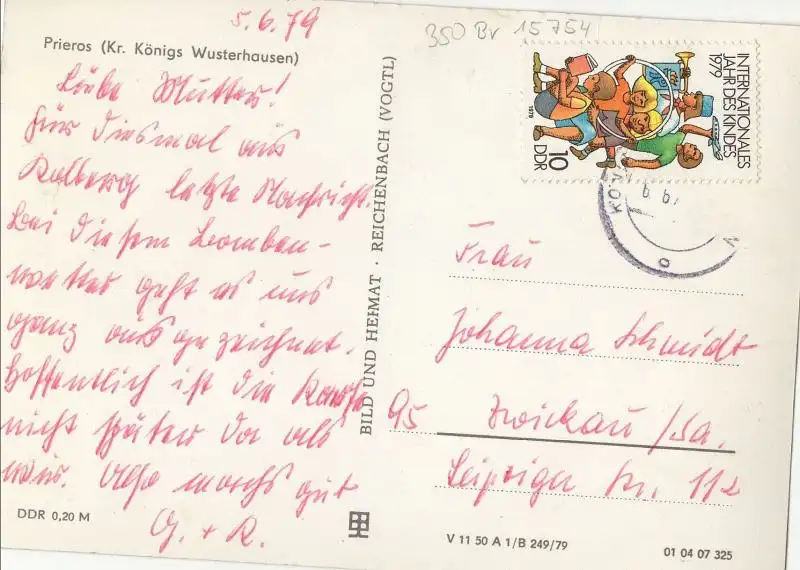 5.6.79
350 Br 15754
Prieros (Kr. Königs Wusterhausen)
Liebe Mutter!
Für diesmal aus
Kolberg letzte Nachricht.
Bei diesem Bomben-
wetter geht es uns
ganz ausgezeichnet.
Hoffentlich ist die Karte
nicht später da als
wir. Also machs gut
G. + R.
DDR 0,20 M
BILD UND HEIMAT · REICHENBACH (VOGTL)
INTERNATIONALES
JAHR DES KINDES
1979
10
DDR
1979
Frau
Johanna Schmidt
95 Zwickau/Sa.
Leipziger Str. 112
V 11 50 A 1/B 249/79
01 04 07 325